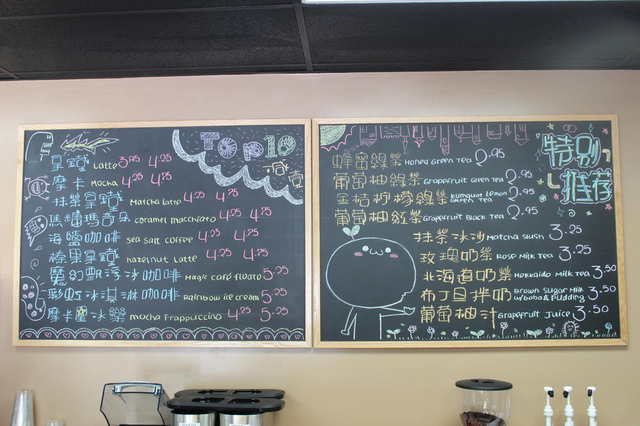 TOP 10
拿鐵 Latte 3.95 4.25
摩卡 Mocha 4.25 4.75
抹茶拿鐵 Matcha Latte 4.25 4.75
焦糖瑪奇朵 caramel macchiato 4.25 4.75
海鹽咖啡 sea salt coffee 4.25 4.75
榛果拿鐵 hazelnut Latte 4.25 4.75
魔幻飄浮冰咖啡 Magic café float 5.25
彩虹冰淇淋咖啡 Rainbow ice cream 5.25
摩卡冰樂 mocha Frappuccino 4.75 5.25
特別推荐
蜂蜜綠茶 Honey Green Tea 2.95
葡萄柚綠茶 Grapefruit Green Tea 2.95
金桔檸檬綠茶 Kumquat Lemon Green Tea 2.95
葡萄柚紅茶 Grapefruit Black Tea 2.95
抹茶冰沙 Matcha Slush 3.25
玫瑰奶茶 Rose Milk Tea 3.25
北海道奶茶 Hokkaido Milk Tea 3.50
布丁QQ奶 Brown Sugar Milk w/boba & pudding 3.50
葡萄柚汁 Grapefruit Juice 3.50